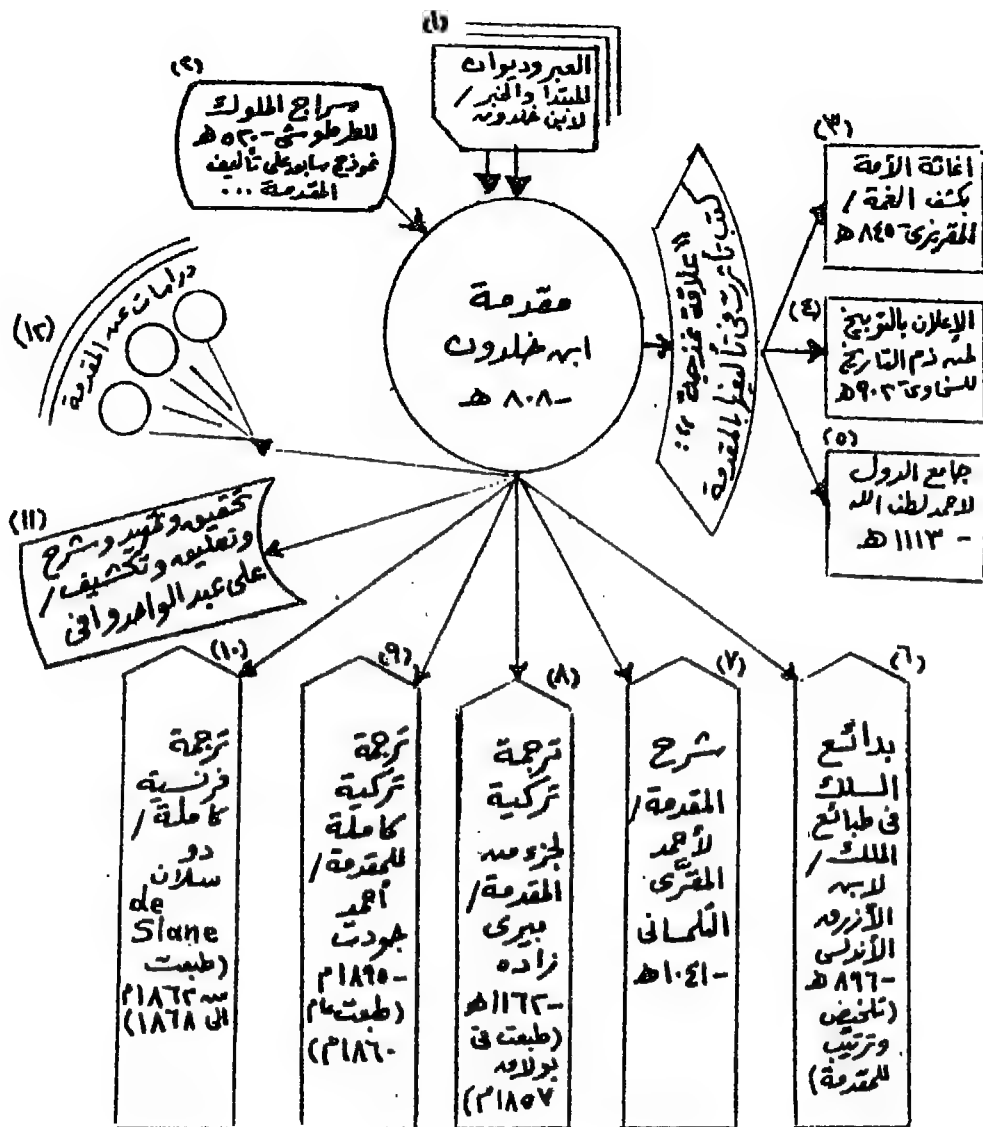 (١)
العبر وديوان
المبتدا والخبر /
لابن خلدون
(٢)
سراج الملوك
للطرطوشى - ٥٢٠ هـ
نموذج سابق على تأليف
المقدمة ...
مقدمة
ابن خلدون
- ٨٠٨ هـ
كتب تأثرت فى تأليفها بالمقدمة
"علاقة نموذجية":
(٣)
اغاثة الأمة
بكشف الغمة /
للمقريزى - ٨٤٥ هـ
(٤)
الإعلان بالتوبيخ
لمن ذم التاريخ
للسخاوى - ٩٠٢ هـ
(٥)
جامع الدول
لاحمد لطف الله
- ١١١٣ هـ
(٦)
بدائع
السلك
فى طبائع
الملك /
لابن
الأزرق
الأندلسى
- ٨٩٦ هـ
(تلخيص
وترتيب
للمقدمة)
(٧)
شرح
المقدمة /
لأحمد
المقرّى
التلمسانى
- ١٠٤١ هـ
(٨)
ترجمة
تركية
لجزء من
المقدمة /
بيرى
زاده
- ١١٦٢ هـ
(طبعت فى
بولاق
١٨٥٧م)
(٩)
ترجمة
تركية
كاملة
للمقدمة /
أحمد
جودت
- ١٨٩٥م
(طبعت عام
١٨٦٠م)
(١٠)
ترجمة
فرنسية
كاملة /
دو
سلان
de
Slane
(طبعت
من ١٨٦٢م
الى ١٨٦٨)
(١١)
تحقيق وتمهيد وشرح
وتعليق وتكشيف /
على عبد الواحد وافى
(١٢)
دراسات عن المقدمة